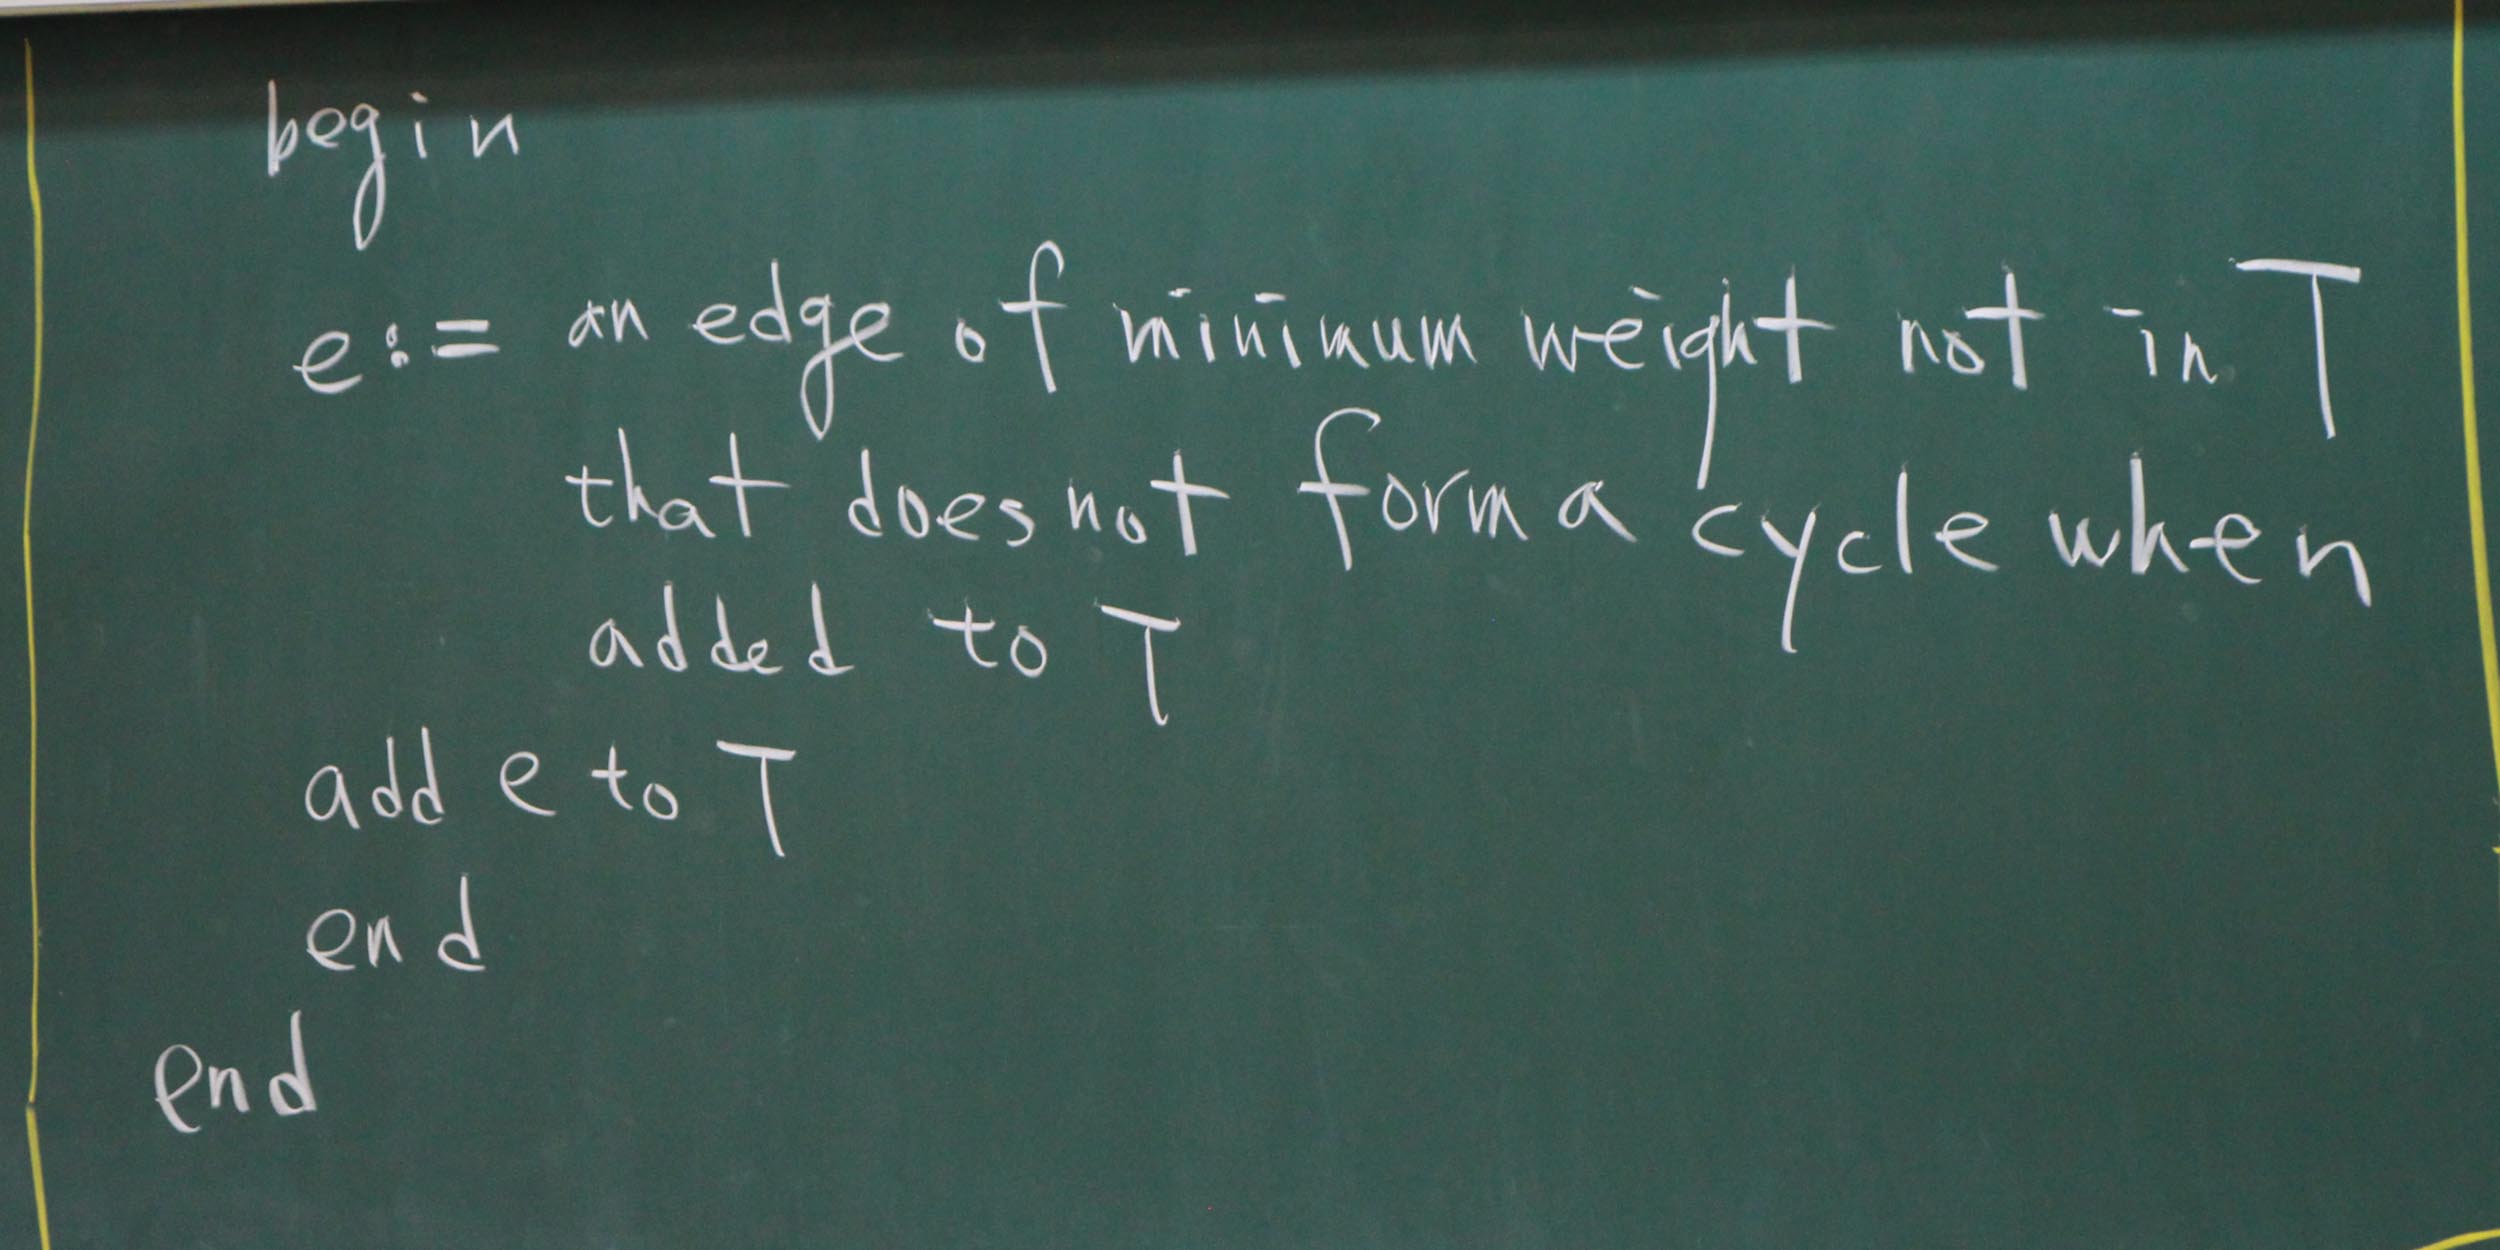 begin
e:= an edge of minimum weight not in T
that does not form a cycle when
added to T
add e to T
end
end